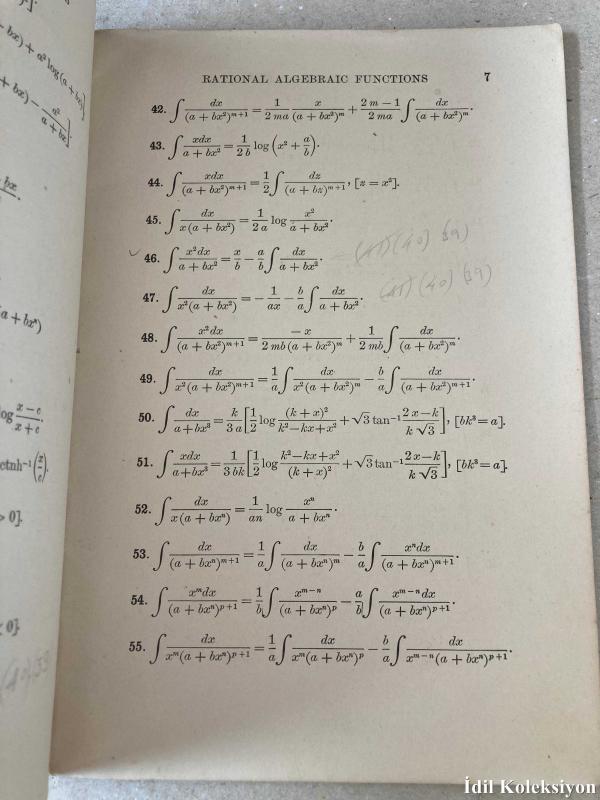 - bx) + a² log (a + bx)]
+ bx) - a²/(a + bx)].
bx
(a + bxⁿ)
log (x - c)/(x + c)
ctnh⁻¹(x/c).
> 0].
< 0].
RATIONAL ALGEBRAIC FUNCTIONS 7
42. ∫ dx/(a + bx²)ᵐ⁺¹ = 1/(2 ma) x/(a + bx²)ᵐ + (2 m - 1)/(2 ma) ∫ dx/(a + bx²)ᵐ.
43. ∫ xdx/(a + bx²) = 1/(2 b) log (x² + a/b).
44. ∫ xdx/(a + bx²)ᵐ⁺¹ = 1/2 ∫ dz/(a + bz)ᵐ⁺¹, [z = x²].
45. ∫ dx/(x (a + bx²)) = 1/(2 a) log x²/(a + bx²).
46. ∫ x² dx/(a + bx²) = x/b - a/b ∫ dx/(a + bx²).
47. ∫ dx/(x² (a + bx²)) = - 1/(ax) - b/a ∫ dx/(a + bx²).
(40) (39)
48. ∫ x² dx/(a + bx²)ᵐ⁺¹ = - x/(2 mb (a + bx²)ᵐ) + 1/(2 mb) ∫ dx/(a + bx²)ᵐ.
49. ∫ dx/(x² (a + bx²)ᵐ⁺¹) = 1/a ∫ dx/(x² (a + bx²)ᵐ) - b/a ∫ dx/(a + bx²)ᵐ⁺¹.
50. ∫ dx/(a + bx³) = k/(3 a) [1/2 log (k + x)²/(k² - kx + x²) + √3 tan⁻¹ (2 x - k)/(k √3)], [bk³ = a].
51. ∫ xdx/(a + bx³) = 1/(3 bk) [1/2 log (k² - kx + x²)/(k + x)² + √3 tan⁻¹ (2 x - k)/(k √3)], [bk³ = a].
52. ∫ dx/(x (a + bxⁿ)) = 1/(an) log xⁿ/(a + bxⁿ).
53. ∫ dx/(a + bxⁿ)ᵐ⁺¹ = 1/a ∫ dx/(a + bxⁿ)ᵐ - b/a ∫ xⁿ dx/(a + bxⁿ)ᵐ⁺¹.
54. ∫ xᵐ dx/(a + bxⁿ)ᵖ⁺¹ = 1/b ∫ xᵐ⁻ⁿ/(a + bxⁿ)ᵖ - a/b ∫ xᵐ⁻ⁿ dx/(a + bxⁿ)ᵖ⁺¹.
55. ∫ dx/(xᵐ (a + bxⁿ)ᵖ⁺¹) = 1/a ∫ dx/(xᵐ (a + bxⁿ)ᵖ) - b/a ∫ dx/(xᵐ⁻ⁿ (a + bxⁿ)ᵖ⁺¹).
İdil Koleksiyon